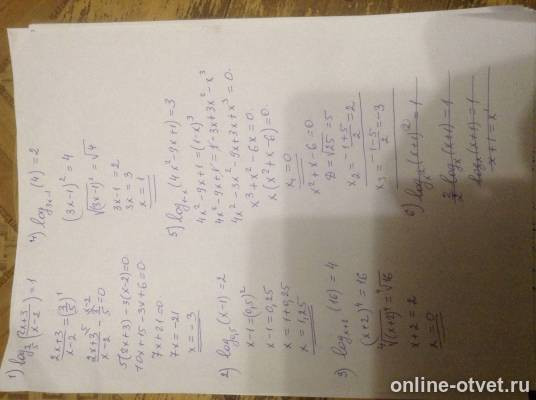 1) log_{3/5} (2x+3)/(x-2) = 1
(2x+3)/(x-2) = (3/5)^1
(2x+3)/(x-2) - 3/5 = 0
5(2x+3)-3(x-2)=0
10x+15-3x+6=0
7x+21=0
7x=-21
x=-3
2) log_{0,5} (x-1)=2
x-1=(0,5)^2
x-1=0,25
x=1+0,25
x=1,25
3) log_{x+2} (16)=4
(x+2)^4=16
⁴√(x+2)^4=⁴√16
x+2=2
x=0
4) log_{3x-1} (4)=2
(3x-1)^2=4
√(3x-1)^2=√4
3x-1=2
3x=3
x=1
5) log_{1-x} (4x^2-9x+1)=3
4x^2-9x+1=(1-x)^3
4x^2-9x+1=1^3-3x+3x^2-x^3
4x^2-3x^2-9x+3x+x^3=0
x^3+x^2-6x=0
x(x^2+x-6)=0
x_1=0
x^2+x-6=0
D=√25=5
x_2=(-1+5)/2=2
x_3=(-1-5)/2=-3
(x+1)^2=1
(x+1)=1
(x+1)=1
x+1=x^1
online-otvet.ru